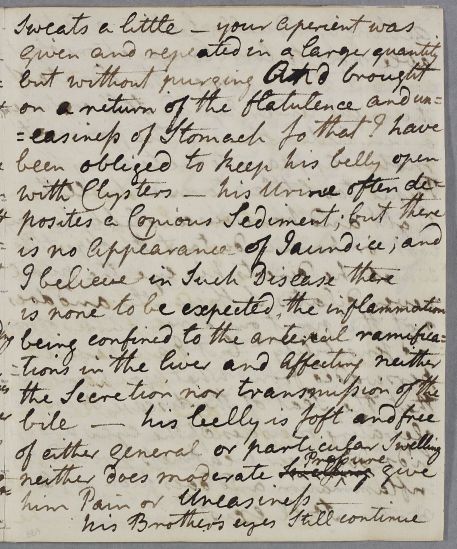 Sweats a little — your aperient was
given and repeated in a large quantity
but without purging And brought
on a return of the flatulence and un=
=easiness of Stomach so that I have
been obliged to keep his belly open
with Clysters — his Urine often de-
posites a Copious Sediment; but there
is no Appearance of Jaundice; and
I believe in Such Disease there
is none to be expected, the inflammation
being confined to the arterical ramifica=
=tions in the liver and Affecting neither
the Secretion nor transmission of the
bile — his belly is soft and free
of either general or particular Swelling
neither does moderate Pressure give
him Pain or Uneasiness
his Brother's eyes Still continue